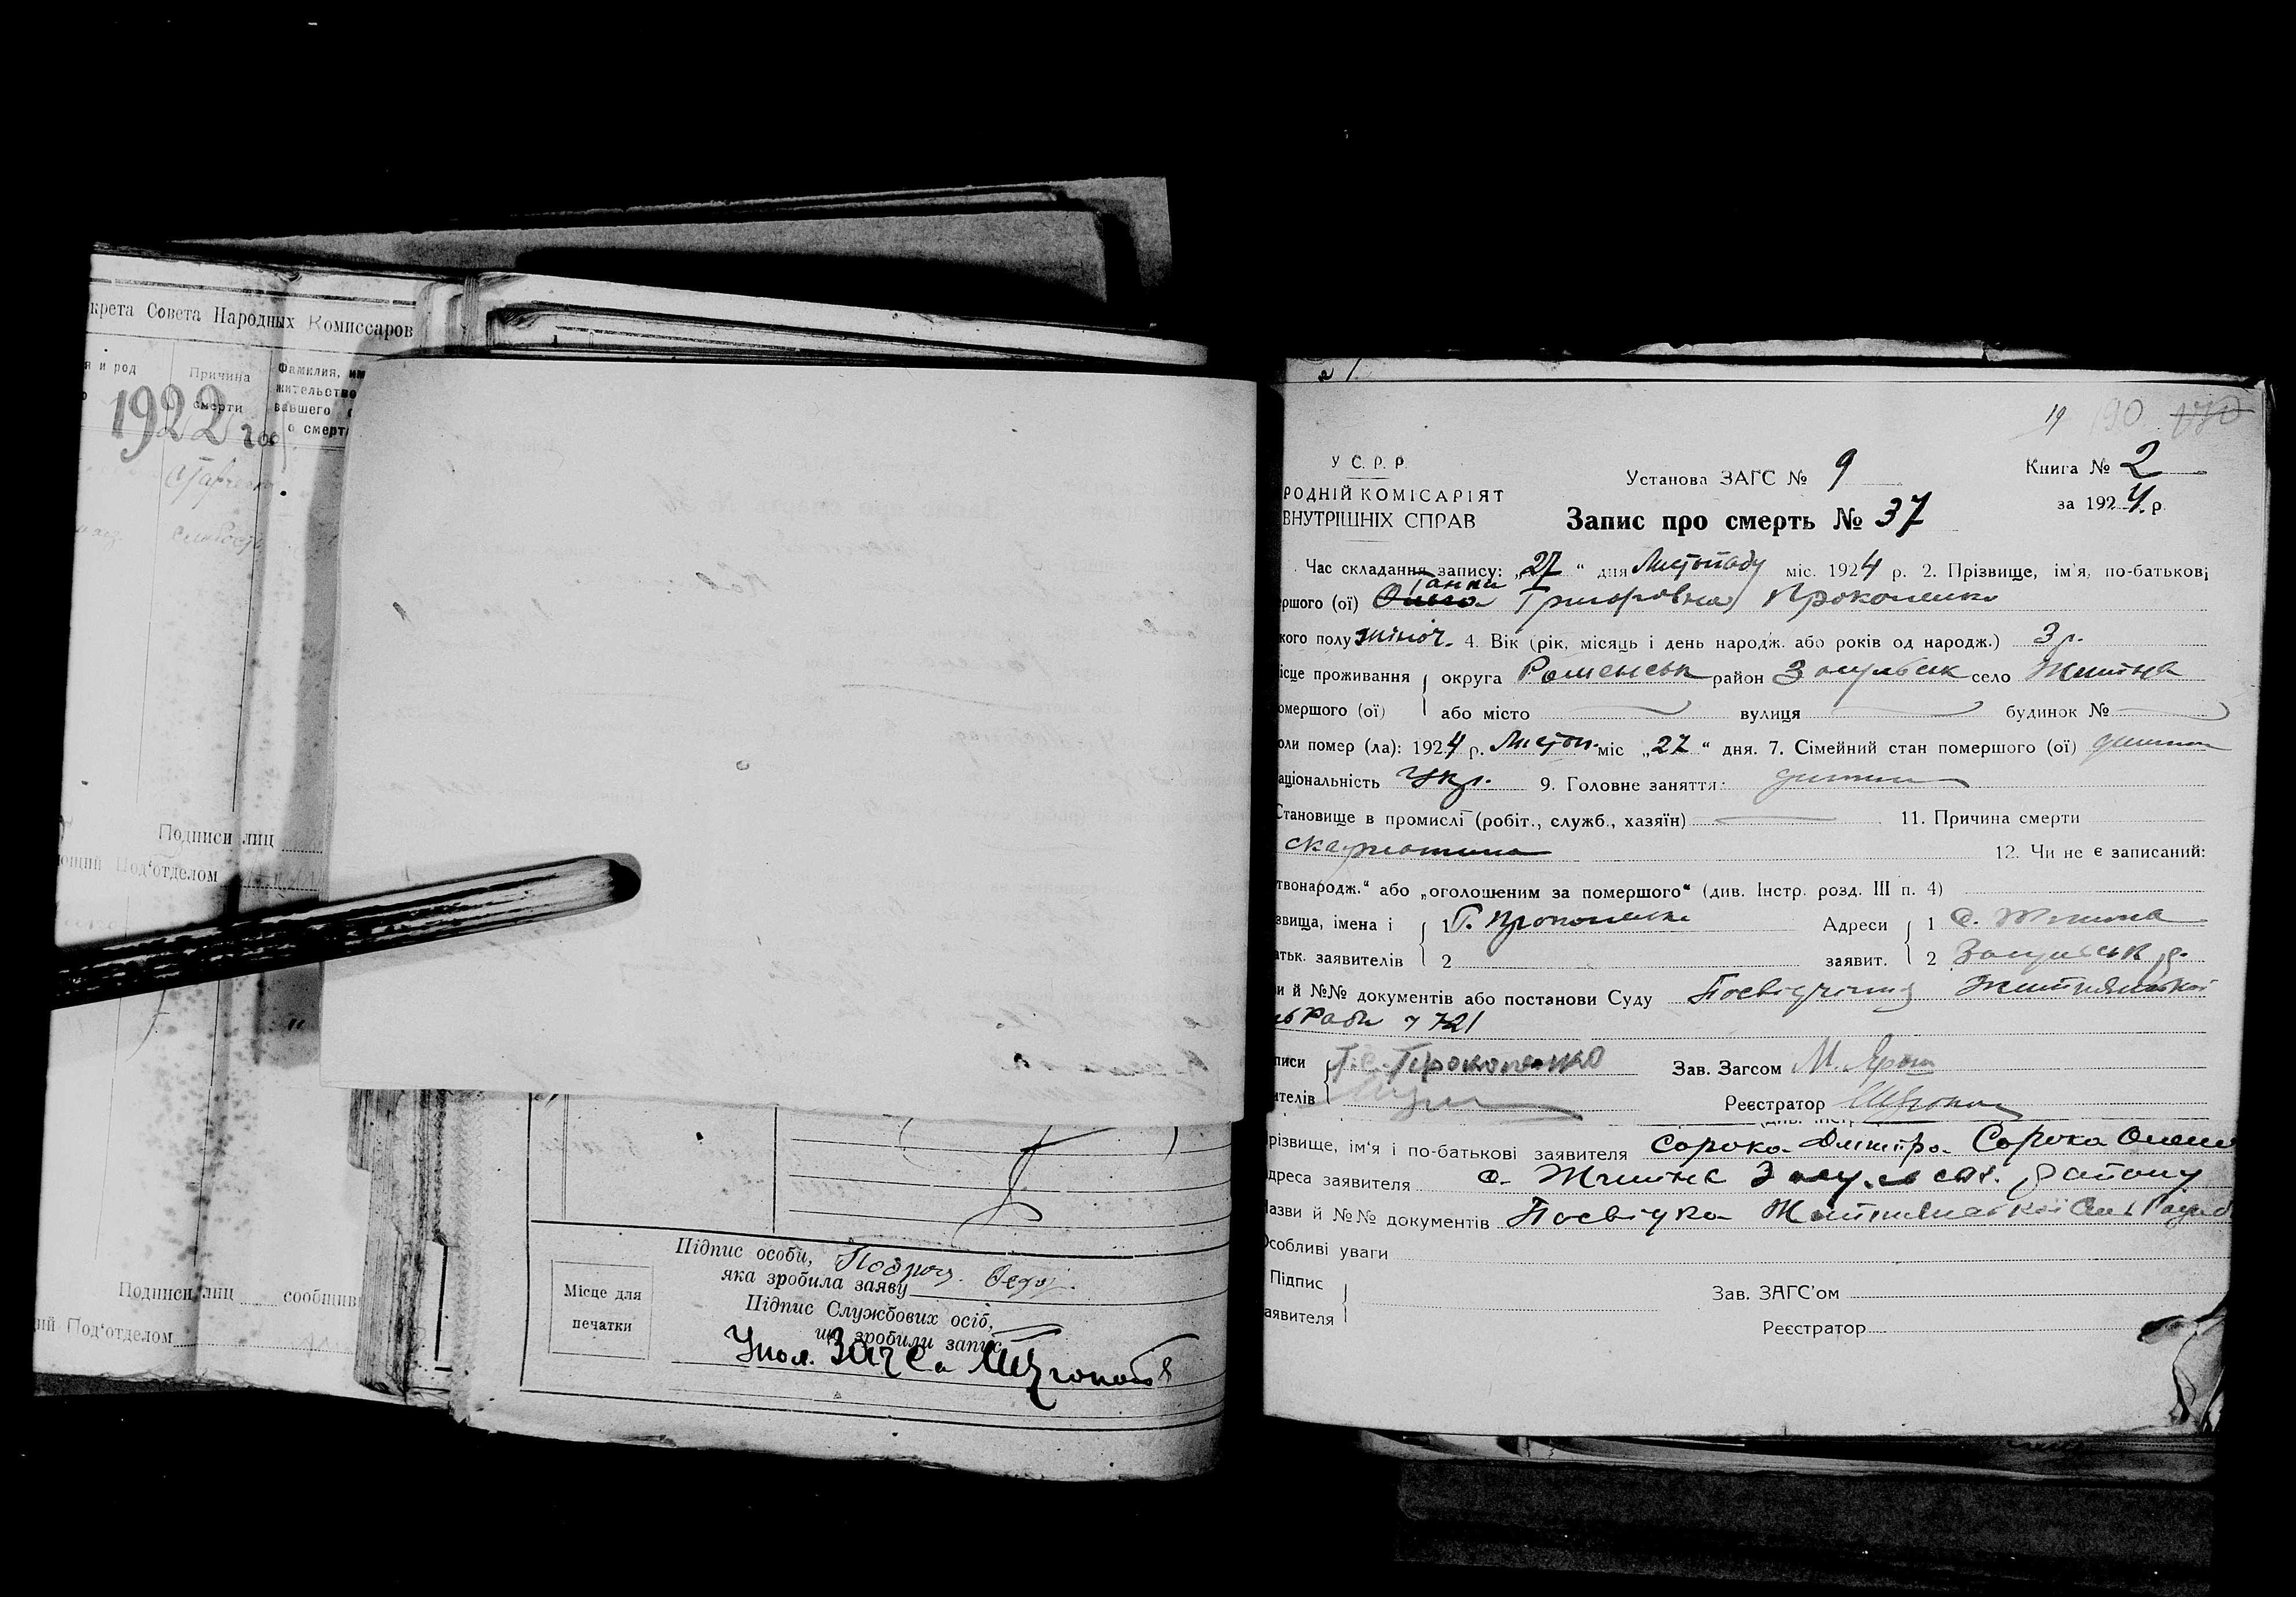 крета Совета Народных Комиссаров
я и род
Причина
смерти
Фамилия, им
жительство
вавшего
о смерт
1922 год
слабость
Подписи лиц
ющий Под'отделом
Подписи лиц сообщив
ий Под'отделом
Підпис особи,
яка зробила заяву
Підпис Службових осіб,
що зробили запис
Місце для
печатки
Упол. Загса
19 190
У С. Р. Р.
РОДНІЙ КОМІСАРІЯТ
ВНУТРІШНІХ СПРАВ
Установа ЗАГС № 9
Книга № 2
за 1924 р.
Запис про смерть № 37
Час складання запису: „27“ дня Листопаду міс. 1924 р. 2. Прізвище, ім'я, по-батькові
Ганна
ершого (ої) Ольга Григоровна Прокопенко
кого полу жіноч. 4. Вік (рік, місяць і день народж. або років од народж.) 3 р.
ісце проживання округа Роменськ район Засульськ село Житне
омершого (ої) або місто вулиця будинок №
оли помер (ла): 1924 р. Листоп. міс „27“ дня. 7. Сімейний стан помершого (ої) дитина
аціональність Укр. 9. Головне заняття: дитина
Становище в промислі (робіт., служб., хазяїн) 11. Причина смерти
скарлатина 12. Чи не є записаний:
твонародж.“ або „оголошеним за помершого“ (див. Інстр. розд. III п. 4)
звища, імена і 1 Г. Прокопенко Адреси 1 с. Житне
атьк. заявителів 2 заявит. 2 Засульськ р.
и й №№ документів або постанови Суду Посвідчення Житнянської
ь Ради 721
писи Г. С. Прокопенко Зав. Загсом М. Ярош
ителів Реєстратор
різвище, ім'я і по-батькові заявителя Сорока Дмитро Сорока
дреса заявителя с. Житне Засульськ. району
Назви й №№ документів Посвідка Житнянської Сіль Ради
Особливі уваги
Підпис Зав. ЗАГС'ом
аявителя
Реєстратор